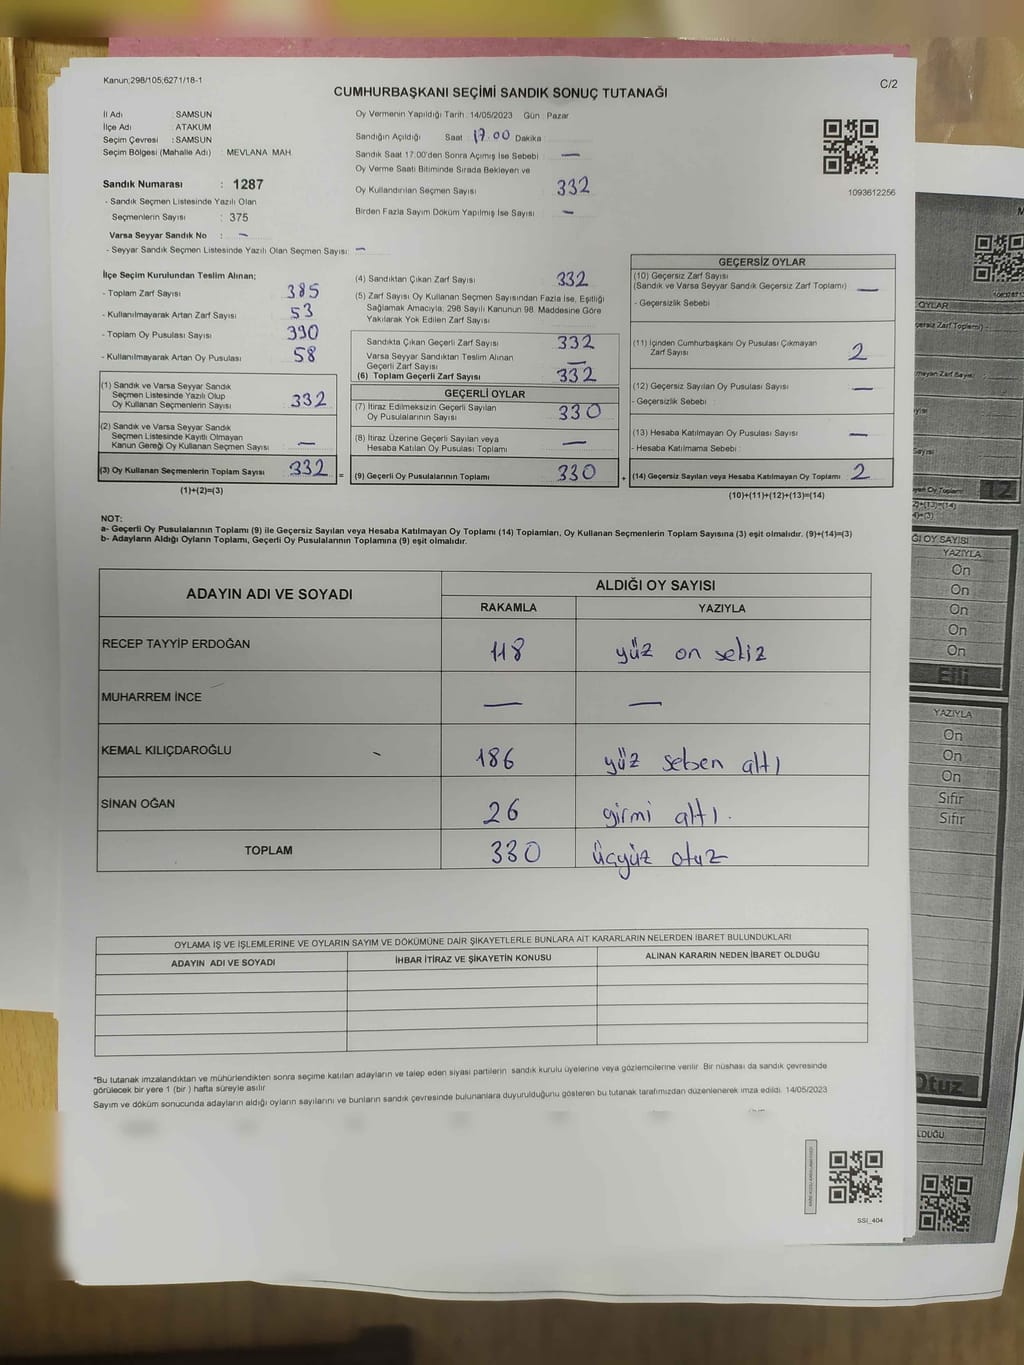 Kanun;298/105,6271/18-1
C/2
CUMHURBAŞKANI SEÇİMİ SANDIK SONUÇ TUTANAĞI
İl Adı : SAMSUN
İlçe Adı : ATAKUM
Seçim Çevresi : SAMSUN
Seçim Bölgesi (Mahalle Adı) : MEVLANA MAH.
Sandık Numarası : 1287
- Sandık Seçmen Listesinde Yazılı Olan
Seçmenlerin Sayısı : 375
Varsa Seyyar Sandık No : —
- Seyyar Sandık Seçmen Listesinde Yazılı Olan Seçmen Sayısı: —
Oy Vermenin Yapıldığı Tarih : 14/05/2023 Gün : Pazar
Sandığın Açıldığı Saat 17.00 Dakika
Sandık Saat 17:00'den Sonra Açımış İse Sebebi : —
Oy Verme Saati Bitiminde Sırada Bekleyen ve
Oy Kullandırılan Seçmen Sayısı 332
Birden Fazla Sayım Döküm Yapılmış İse Sayısı : —
1093612256
İlçe Seçim Kurulundan Teslim Alınan;
- Toplam Zarf Sayısı 385
- Kullanılmayarak Artan Zarf Sayısı : 53
- Toplam Oy Pusulası Sayısı : 390
- Kullanılmayarak Artan Oy Pusulası : 58
(1) Sandık ve Varsa Seyyar Sandık
Seçmen Listesinde Yazılı Olup
Oy Kullanan Seçmenlerin Sayısı : 332
(2) Sandık ve Varsa Seyyar Sandık
Seçmen Listesinde Kayıtlı Olmayan
Kanun Gereği Oy Kullanan Seçmen Sayısı : —
(3) Oy Kullanan Seçmenlerin Toplam Sayısı : 332 =
(1)+(2)=(3)
(4) Sandıktan Çıkan Zarf Sayısı : 332
(5) Zarf Sayısı Oy Kullanan Seçmen Sayısından Fazla İse, Eşitliği
Sağlamak Amacıyla, 298 Sayılı Kanunun 98. Maddesine Göre
Yakılarak Yok Edilen Zarf Sayısı :
Sandıkta Çıkan Geçerli Zarf Sayısı : 332
Varsa Seyyar Sandıktan Teslim Alınan
Geçerli Zarf Sayısı : —
(6) Toplam Geçerli Zarf Sayısı : 332
GEÇERLİ OYLAR
(7) İtiraz Edilmeksizin Geçerli Sayılan
Oy Pusulalarının Sayısı : 330
(8) İtiraz Üzerine Geçerli Sayılan veya
Hesaba Katılan Oy Pusulaları Toplamı : —
(9) Geçerli Oy Pusulalarının Toplamı : 330 +
GEÇERSİZ OYLAR
(10) Geçersiz Zarf Sayısı
(Sandık ve Varsa Seyyar Sandık Geçersiz Zarf Toplamı) : —
- Geçersizlik Sebebi :
(11) İçinden Cumhurbaşkanı Oy Pusulası Çıkmayan
Zarf Sayısı : 2
(12) Geçersiz Sayılan Oy Pusulası Sayısı : —
- Geçersizlik Sebebi :
(13) Hesaba Katılmayan Oy Pusulası Sayısı : —
- Hesaba Katılmama Sebebi :
(14) Geçersiz Sayılan veya Hesaba Katılmayan Oy Toplamı : 2
(10)+(11)+(12)+(13)=(14)
NOT:
a- Geçerli Oy Pusulalarının Toplamı (9) ile Geçersiz Sayılan veya Hesaba Katılmayan Oy Toplamı (14) Toplamları, Oy Kullanan Seçmenlerin Toplam Sayısına (3) eşit olmalıdır. (9)+(14)=(3)
b- Adayların Aldığı Oyların Toplamı, Geçerli Oy Pusulalarının Toplamına (9) eşit olmalıdır.
ADAYIN ADI VE SOYADI
ALDIĞI OY SAYISI
RAKAMLA YAZIYLA
RECEP TAYYİP ERDOĞAN 118 yüz on sekiz
MUHARREM İNCE — —
KEMAL KILIÇDAROĞLU 186 yüz seksen altı
SİNAN OĞAN 26 yirmi altı.
TOPLAM 330 üçyüz otuz
OYLAMA İŞ VE İŞLEMLERİNE VE OYLARIN SAYIM VE DÖKÜMÜNE DAİR ŞİKAYETLERLE BUNLARA AİT KARARLARIN NELERDEN İBARET BULUNDUKLARI
ADAYIN ADI VE SOYADI İHBAR İTİRAZ VE ŞİKAYETİN KONUSU ALINAN KARARIN NEDEN İBARET OLDUĞU
*Bu tutanak imzalandıktan ve mühürlendikten sonra seçime katılan adayların ve talep eden siyasi partilerin sandık kurulu üyelerine veya gözlemcilerine verilir. Bir nüshası da sandık çevresinde
görülecek bir yere 1 (bir) hafta süreyle asılır.
Sayım ve döküm sonucunda adayların aldığı oyların sayılarını ve bunların sandık çevresinde bulunanlara duyurulduğunu gösteren bu tutanak tarafımızdan düzenlenerek imza edildi. 14/05/2023
SSİ_404
OYLAR
12
Ğİ OY SAYISI
YAZIYLA
On
On
On
On
On
Elli
YAZIYLA
On
On
On
Sıfır
Sıfır
Otuz
LDUĞU